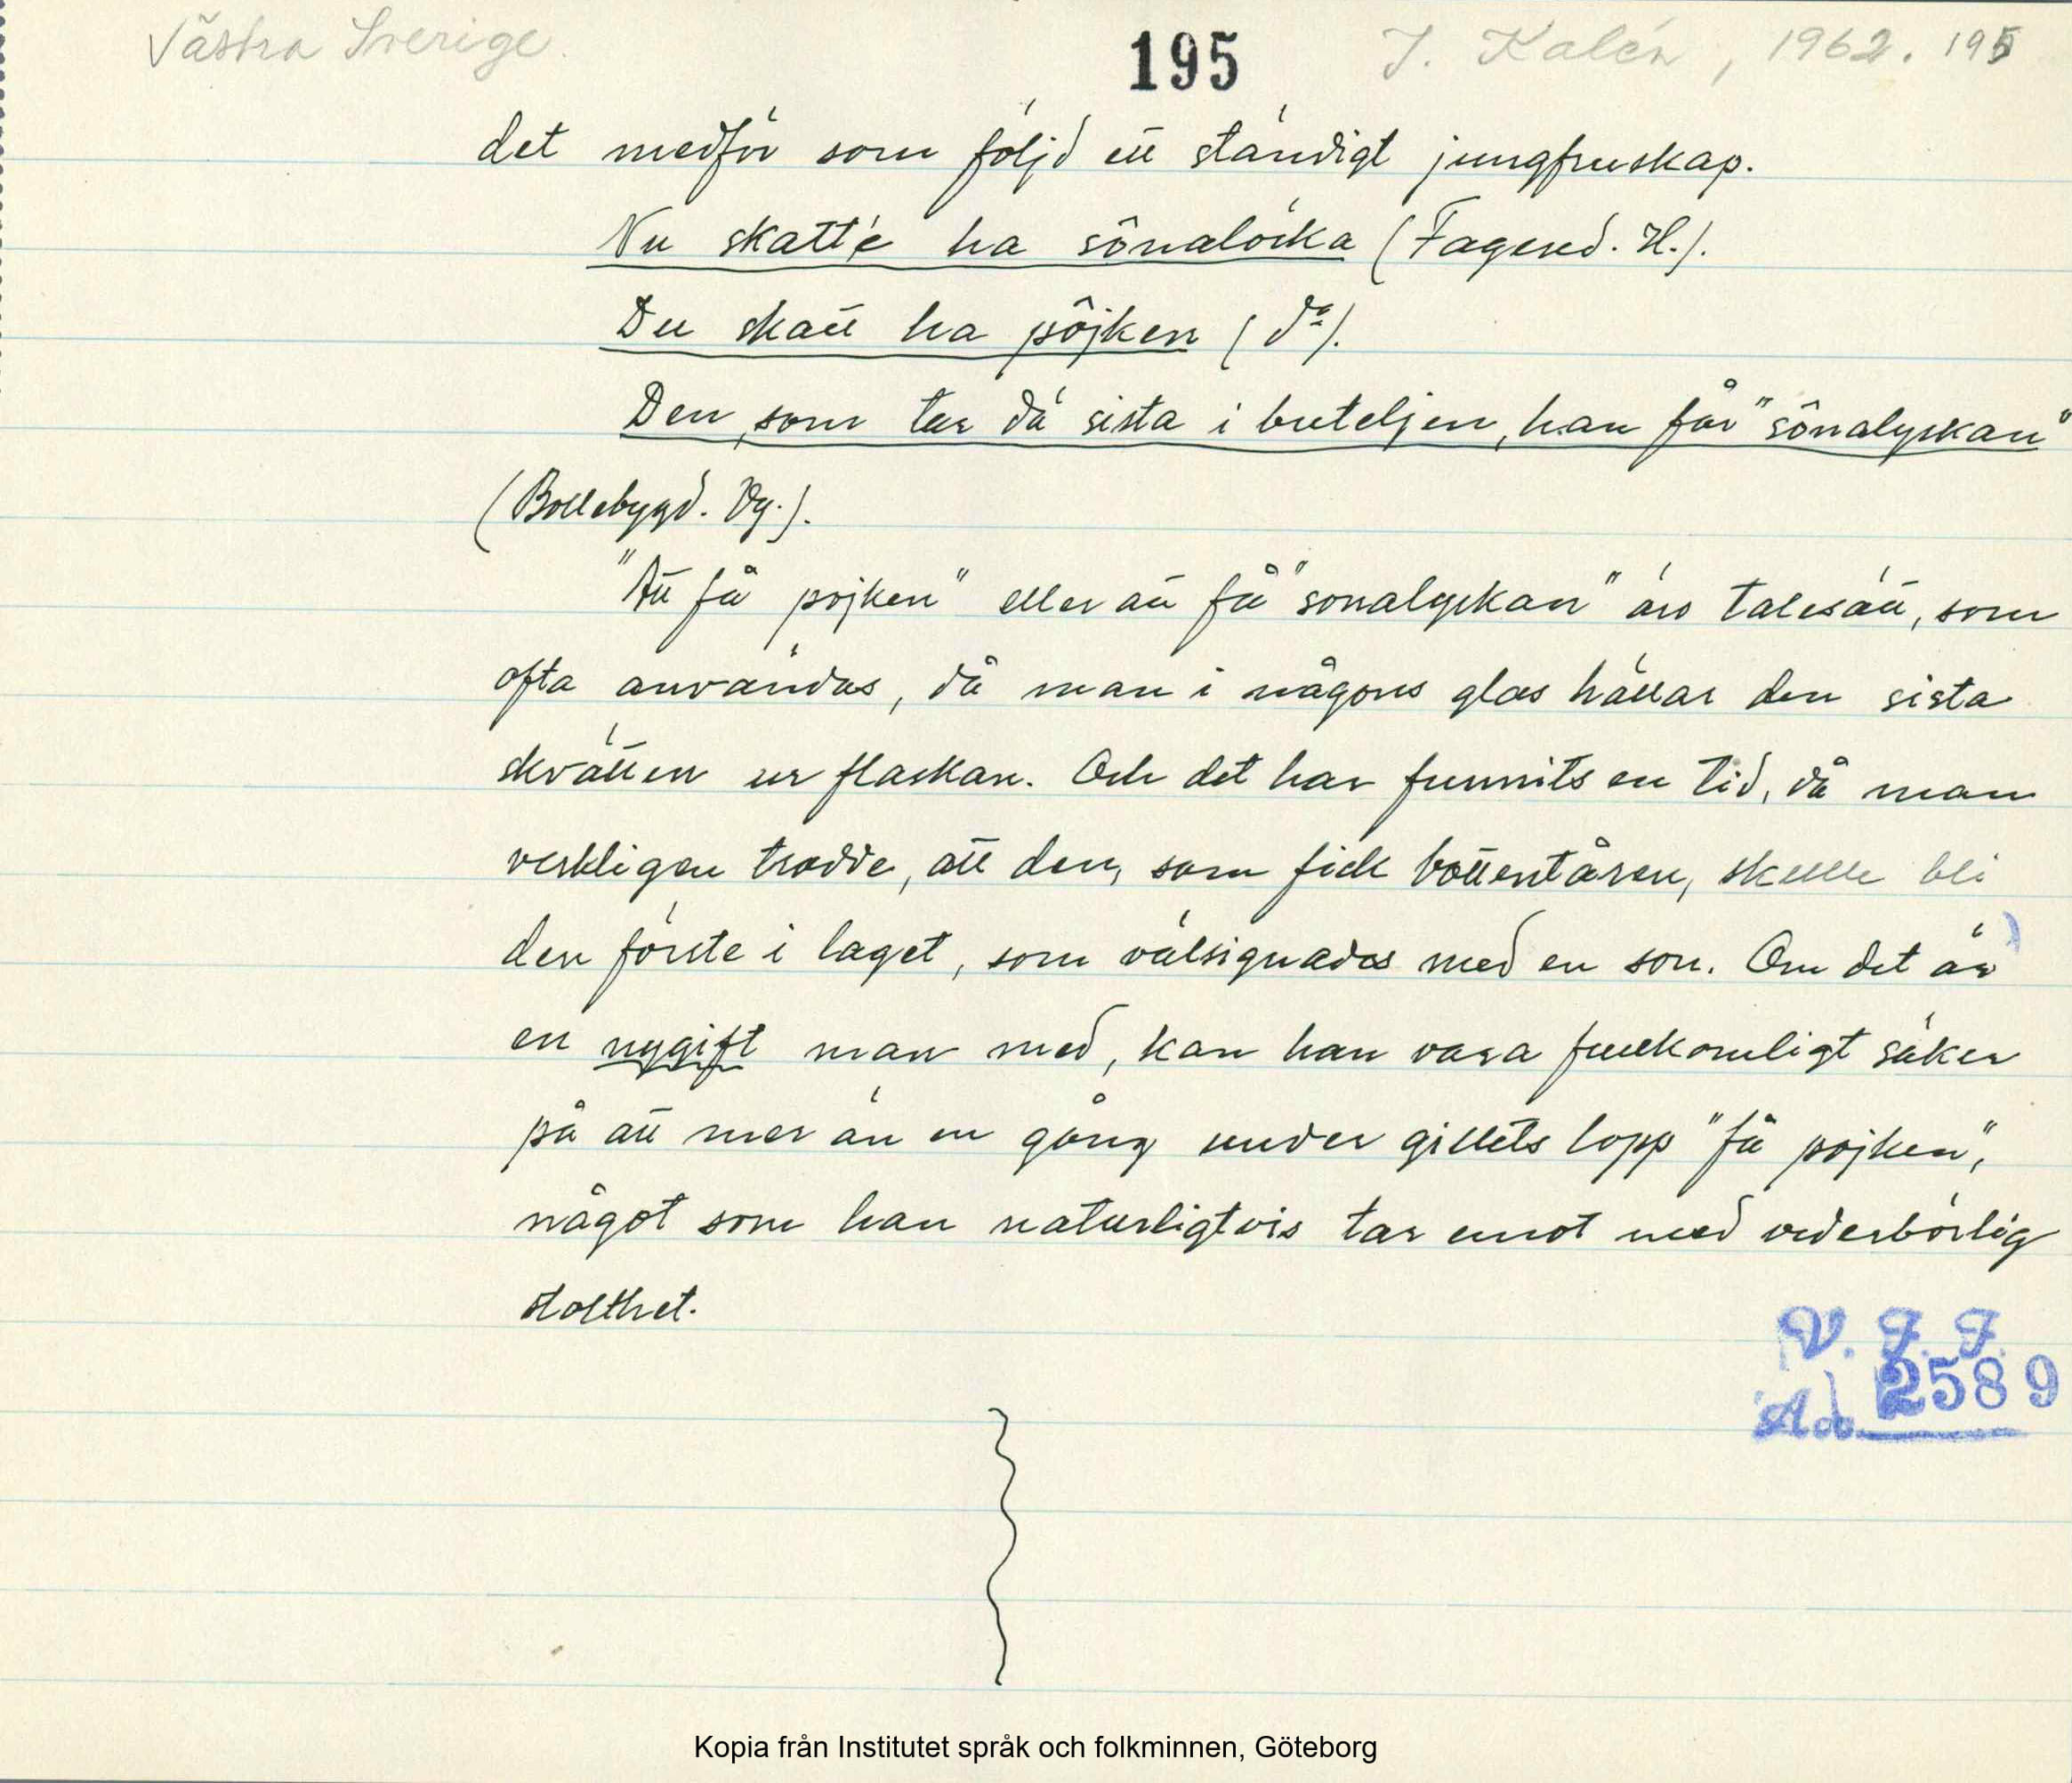 Västra Sverige. 195 J. Kalén, 1962. 195
det medför som följd ett ständigt jungfruskap.
Nu skatt'e ha sônalöcka (Fagered. H.).
Du skatt ha pôjken (d:o).
Den, som tar dä sista i buteljen, han får "sônalyckan"
(Bollebygd. Vg.).
"Att få pojken" eller att få "sonalyckan" äro talesätt, som
ofta användas, då man i någons glas hällar den sista
skvätten ur flaskan. Och det har funnits en tid, då man
verkligen trodde, att den, som fick bottentåren, skulle bli
den förste i laget, som välsignades med en son. Om det är
en nygift man med, kan han vara fullkomligt säker
på att mer än en gång under gillets lopp "få pojken",
något som han naturligtvis tar emot med vederbörlig
stolthet.
V. F. F.
Ad. 2589
Kopia från Institutet språk och folkminnen, Göteborg